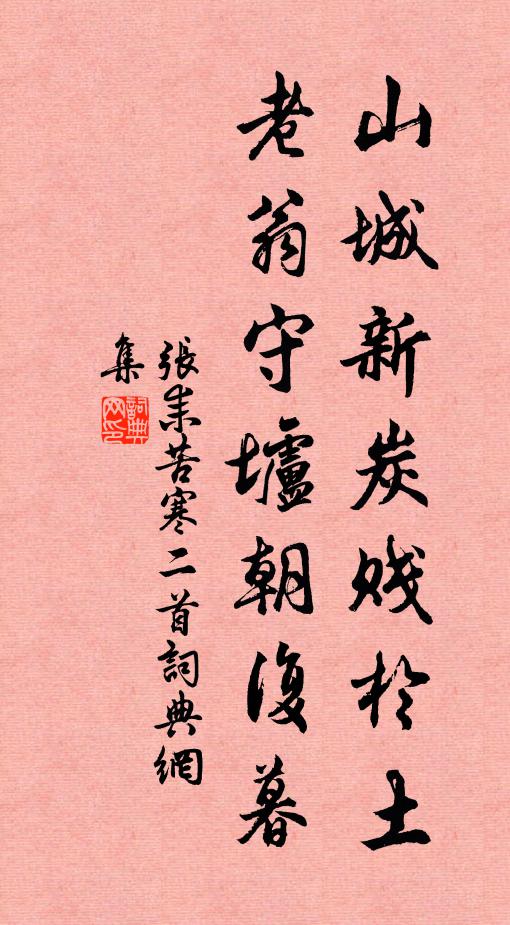 山城新炭賤於土
老翁守壚朝復暮
張耒苦寒二首詞典網
集
詞典
网印